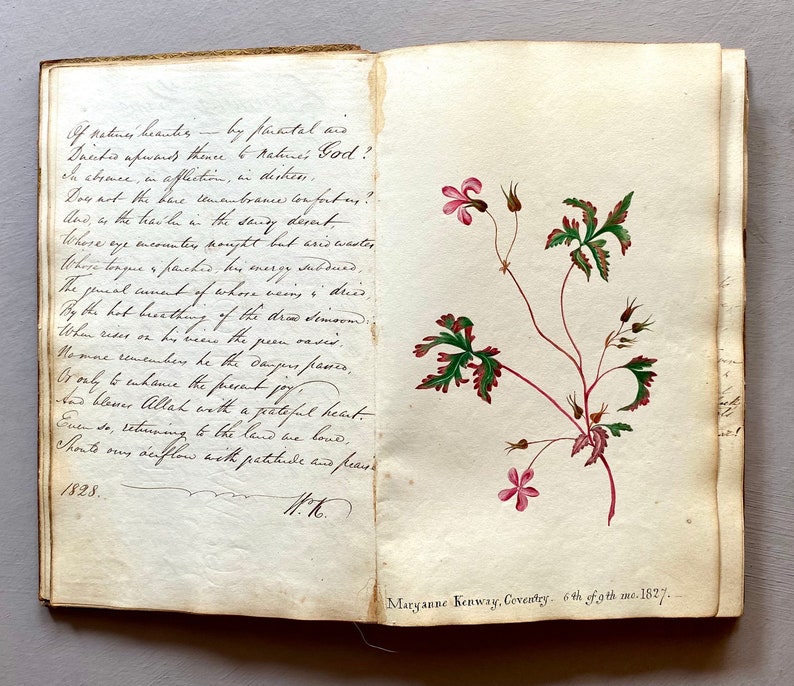 Of nature's beauties — by parental aid
Directed upwards thence to nature's God?
In absence, in affliction, in distress,
Does not the bare remembrance comfort us?
And, as the trav'ler in the sandy desert,
Whose eye encounters nought but arid wastes
Whose tongue is parched, his energy subdued,
The genial current of whose veins is dried,
By the hot breathing of the dread simoom:
When rises on his view the green oasis,
No more remembers he the dangers passed,
Or only to enhance the present joy
And blesses Allah with a grateful heart.
Even so, returning to the land we love,
Should ours overflow with gratitude and praise
1828.
W.K.
Maryanne Kenway, Coventry. 6th of 9th mo. 1827.